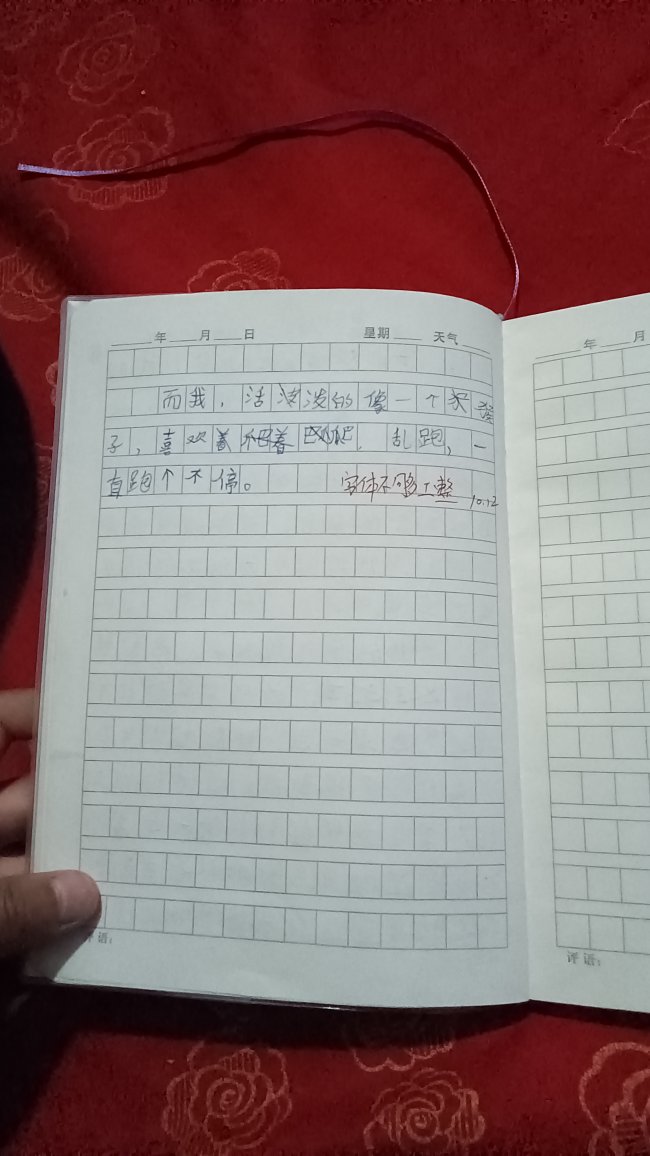 年 月 日 星期 天气
年 月
而我，活泼的像一个
子，喜欢 乱跑，一
直跑个不停。 字体不够工整 10.12
评语：
评语：